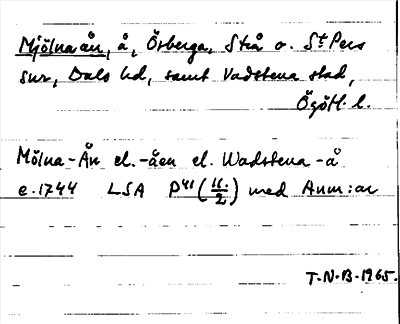 Mjölnaån, å, Örberga, Strå o. St Pers
snr, Dals hd, samt Vadstena stad,
Ögötl. l.
Mölna-Ån el. -åen el. Wadstena-å
e. 1744 LSA P41 (11/2) med Anm:ar
T.N.B. 1965.